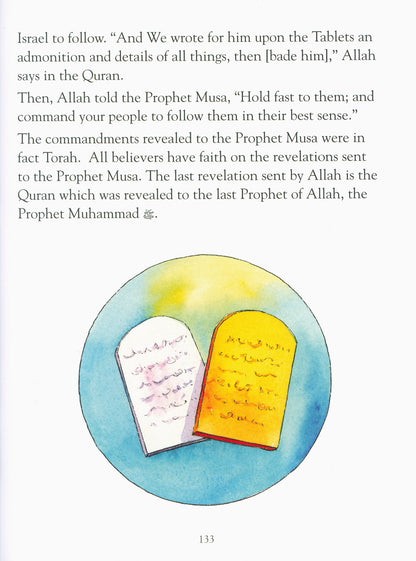 Israel to follow. “And We wrote for him upon the Tablets an
admonition and details of all things, then [bade him],” Allah
says in the Quran.
Then, Allah told the Prophet Musa, “Hold fast to them; and
command your people to follow them in their best sense.”
The commandments revealed to the Prophet Musa were in
fact Torah.  All believers have faith on the revelations sent
to the Prophet Musa. The last revelation sent by Allah is the
Quran which was revealed to the last Prophet of Allah, the
Prophet Muhammad ﷺ.
133